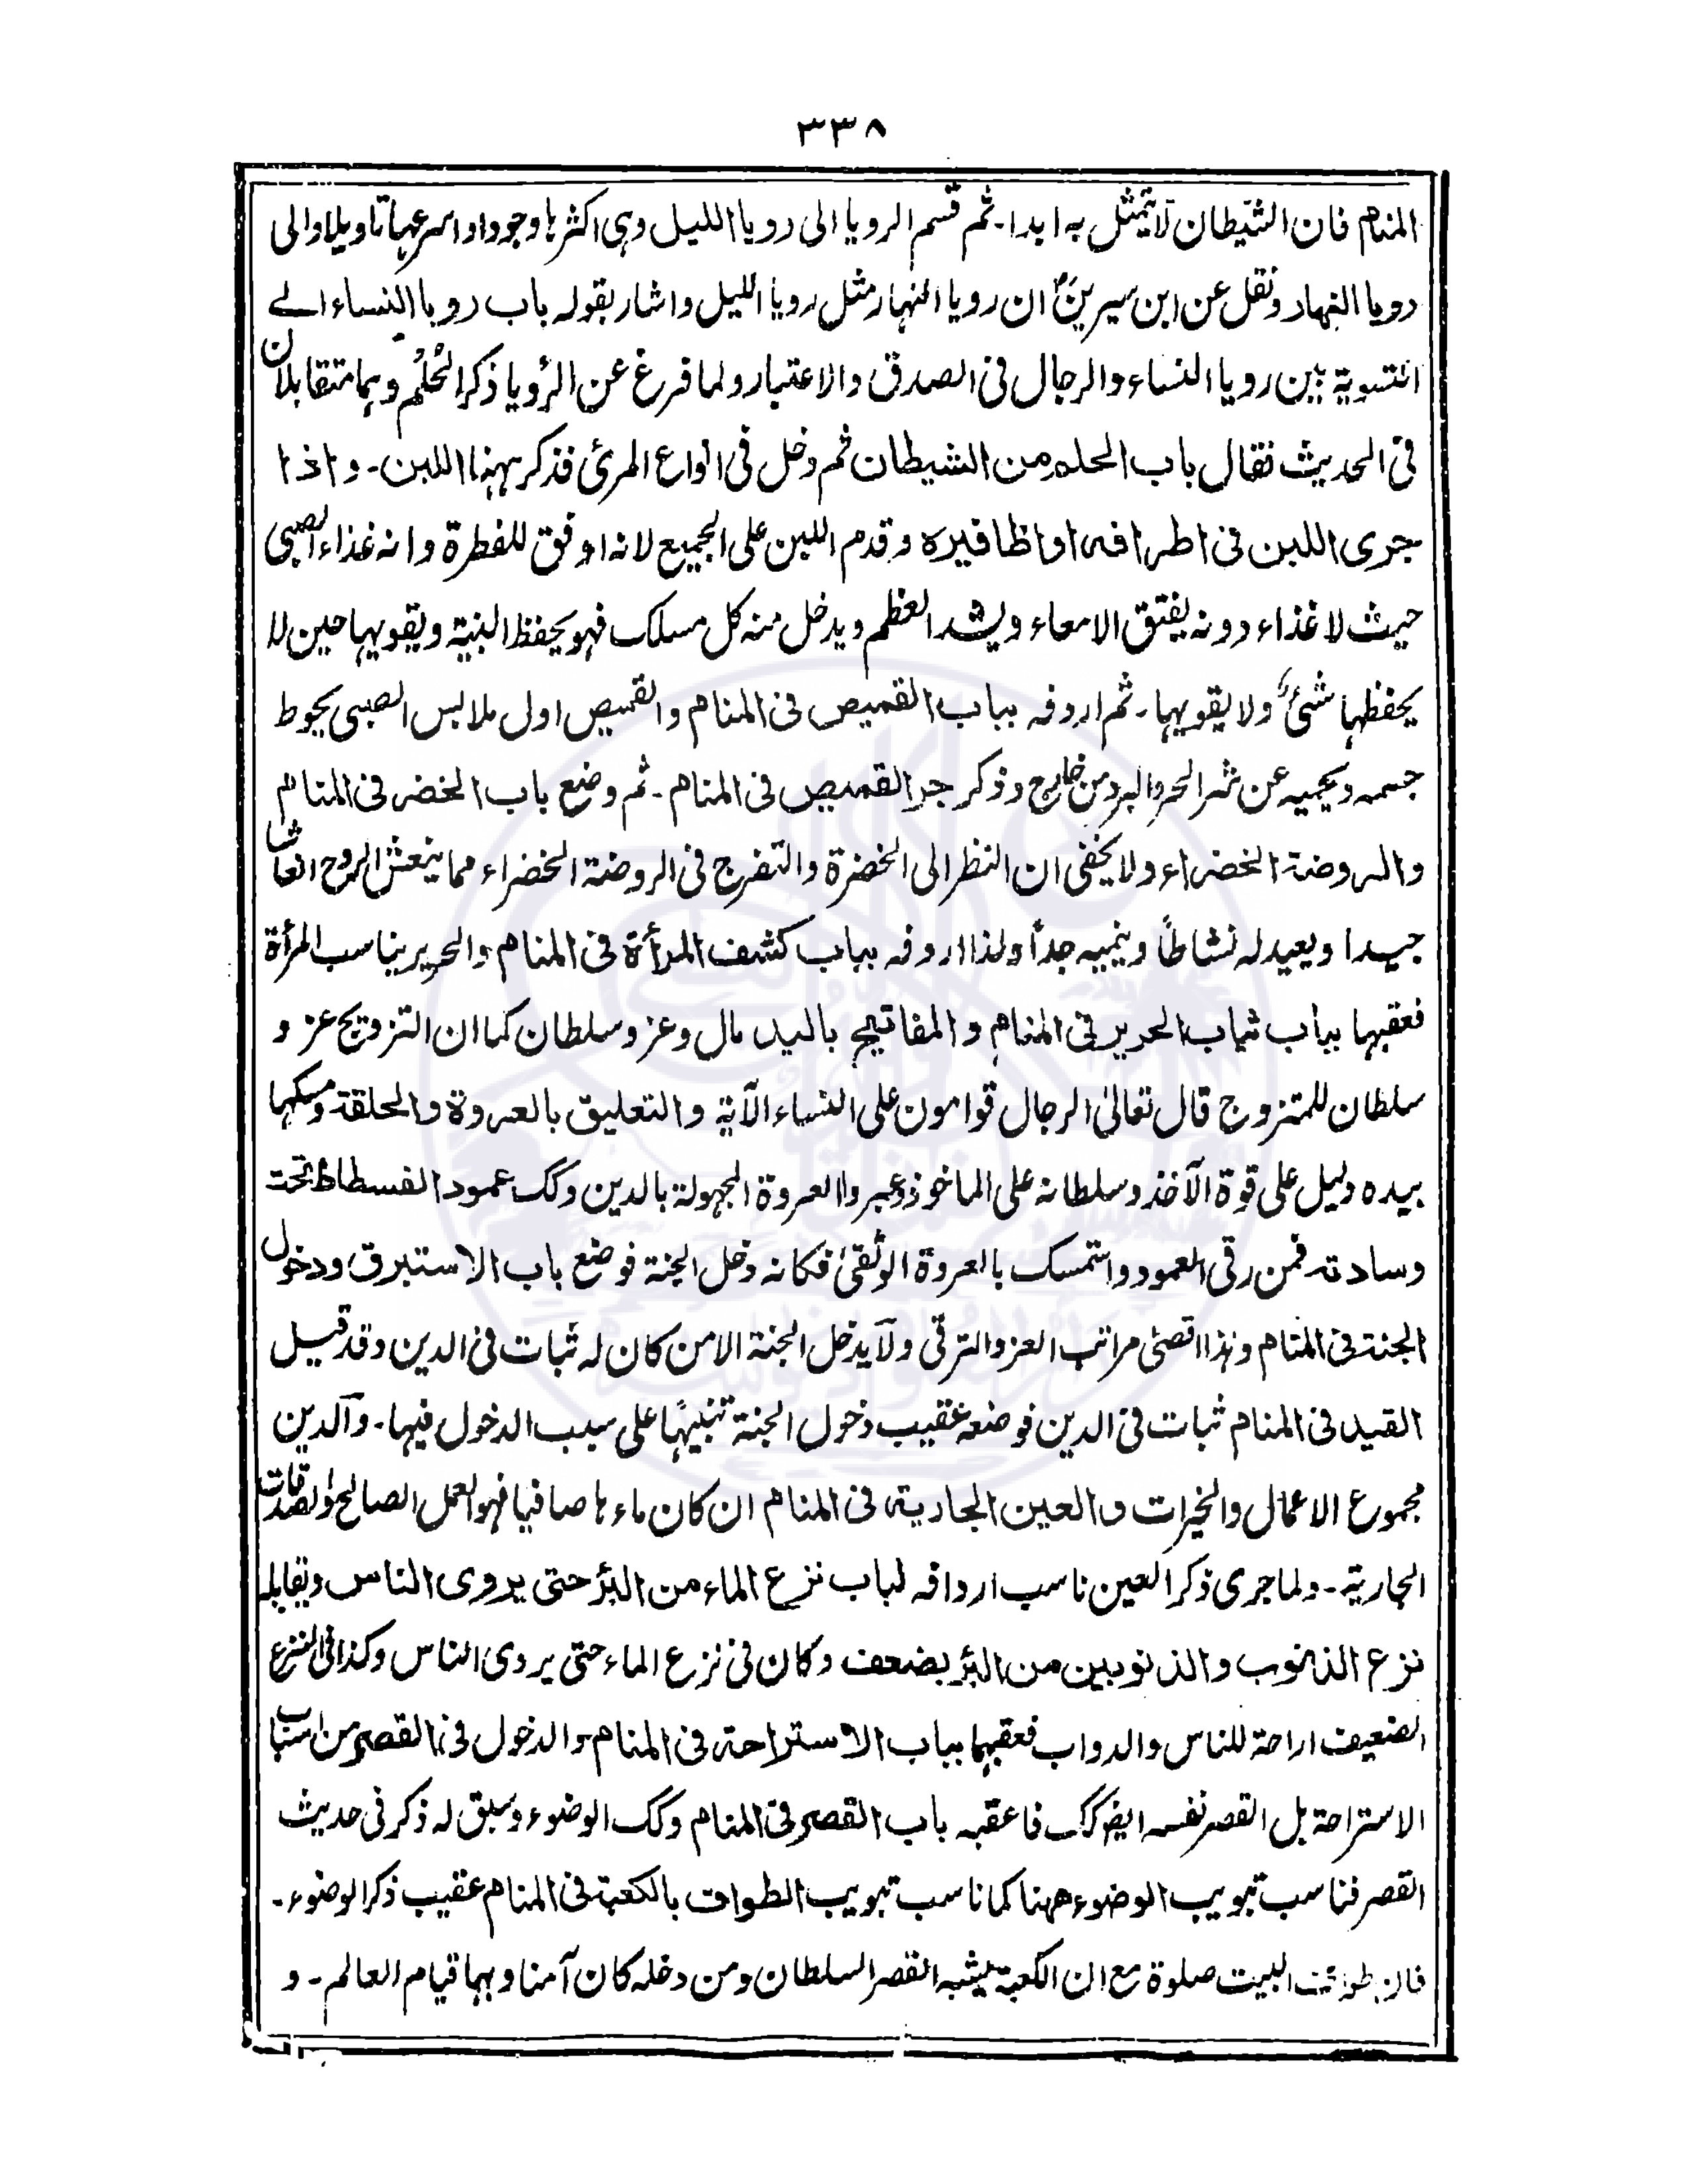 ٣٣٨
المنام فان الشیطان لا یتمثل به ابدا۔ ثم قسم الرویا الی رویا اللیل وہی اکثرہا وجودا واسرعہا تاویلا والی
رویا النهار ونقل عن ابن سیرینؒ ان رویا النہار مثل رویا اللیل واشار بقوله باب رویا النساء الے
التسویة بین رویا النساء والرجال فی الصدق والاعتبار ولما فرغ عن الرُویا ذکر الحُلُم وہما متقابلان
فی الحدیث فقال باب الحلم من الشیطان ثم دخل فی انواع المرئی فذکر ہہنا اللبن۔ واذا
جری اللبن فی اطرافه او اظافیره وقدم اللبن علی الجمیع لانه اوفق للفطرة وانه غذاء الصبی
حیث لا غذاء دونه یفتق الامعاء ویشد العظم ویدخل منه کل مسلک فہو یحفظ البنیة ویقویہا حین لا
یحفظہا شئ ولا یقویہا۔ ثم اردفه بباب القمیص فی المنام والقمیص اول ملابس الصبی یحوط
جسمه ویحمیه عن شر الحر والبرد من خارج وذکر جر القمیص فی المنام۔ ثم وضع باب الخضر فی المنام
والروضة الخضراء ولا یخفی ان النظر الی الخضرة والتفرج فی الروضة الخضراء مما ینعش الروح انعاشا
جیدا ویعید له نشاطاً وینمیه جداً ولذا اردفه بباب کشف المرأة فی المنام والحریر یناسب المرأة
فعقبہا بباب ثیاب الحریر فی المنام والمفاتیح بالید مال وعز وسلطان کما ان التزویج عز و
سلطان للمتزوج قال تعالیٰ الرجال قوامون علی النساء الآیة والتعلیق بالعروة والحلقة ومسکہا
بیده دلیل علی قوة الآخذ وسلطانه علی الماخوذ وعبروا العروة المجہولة بالدین وکک عمود الفسطاط تحت
وسادته فمن رقی العمود واستمسک بالعروة الوثقیٰ فکانه دخل الجنة فوضع باب الاستبرق ودخول
الجنة فی المنام وہذا اقصیٰ مراتب العز والترقی ولا یدخل الجنة الا من کان له ثبات فی الدین وقد قیل
القید فی المنام ثبات فی الدین فوضعه عقیب دخول الجنة تنبیہًا علی سبب الدخول فیہا۔ والدین
مجموع الاعمال والخیرات والعین الجاریة فی المنام ان کان ماءہا صافیا فہو العمل الصالح والصدقات
الجاریة۔ ولما جری ذکر العین ناسب اردافه لباب نزع الماء من البئر حتی یروی الناس ویقابله
نزع الذنوب والذنوبین من البئر بضعف وکان فی نزع الماء حتی یروی الناس وکذا فی النزع
الضعیف اراحة للناس والدواب فعقبہما بباب الاستراحة فی المنام والدخول فی القصر من اسباب
الاستراحة بل القصر نفسه ایضا کک فاعقبه باب القصر فی المنام وکک الوضوء وسبق له ذکر فی حدیث
القصر فناسب تبویب الوضوء ههنا کما ناسب تبویب الطواف بالکعبة فی المنام عقیب ذکر الوضوء۔
فان طواف البیت صلوة مع ان الکعبة یشبه القصر السلطان ومن دخله کان آمنا وبہما قیام العالم۔ و